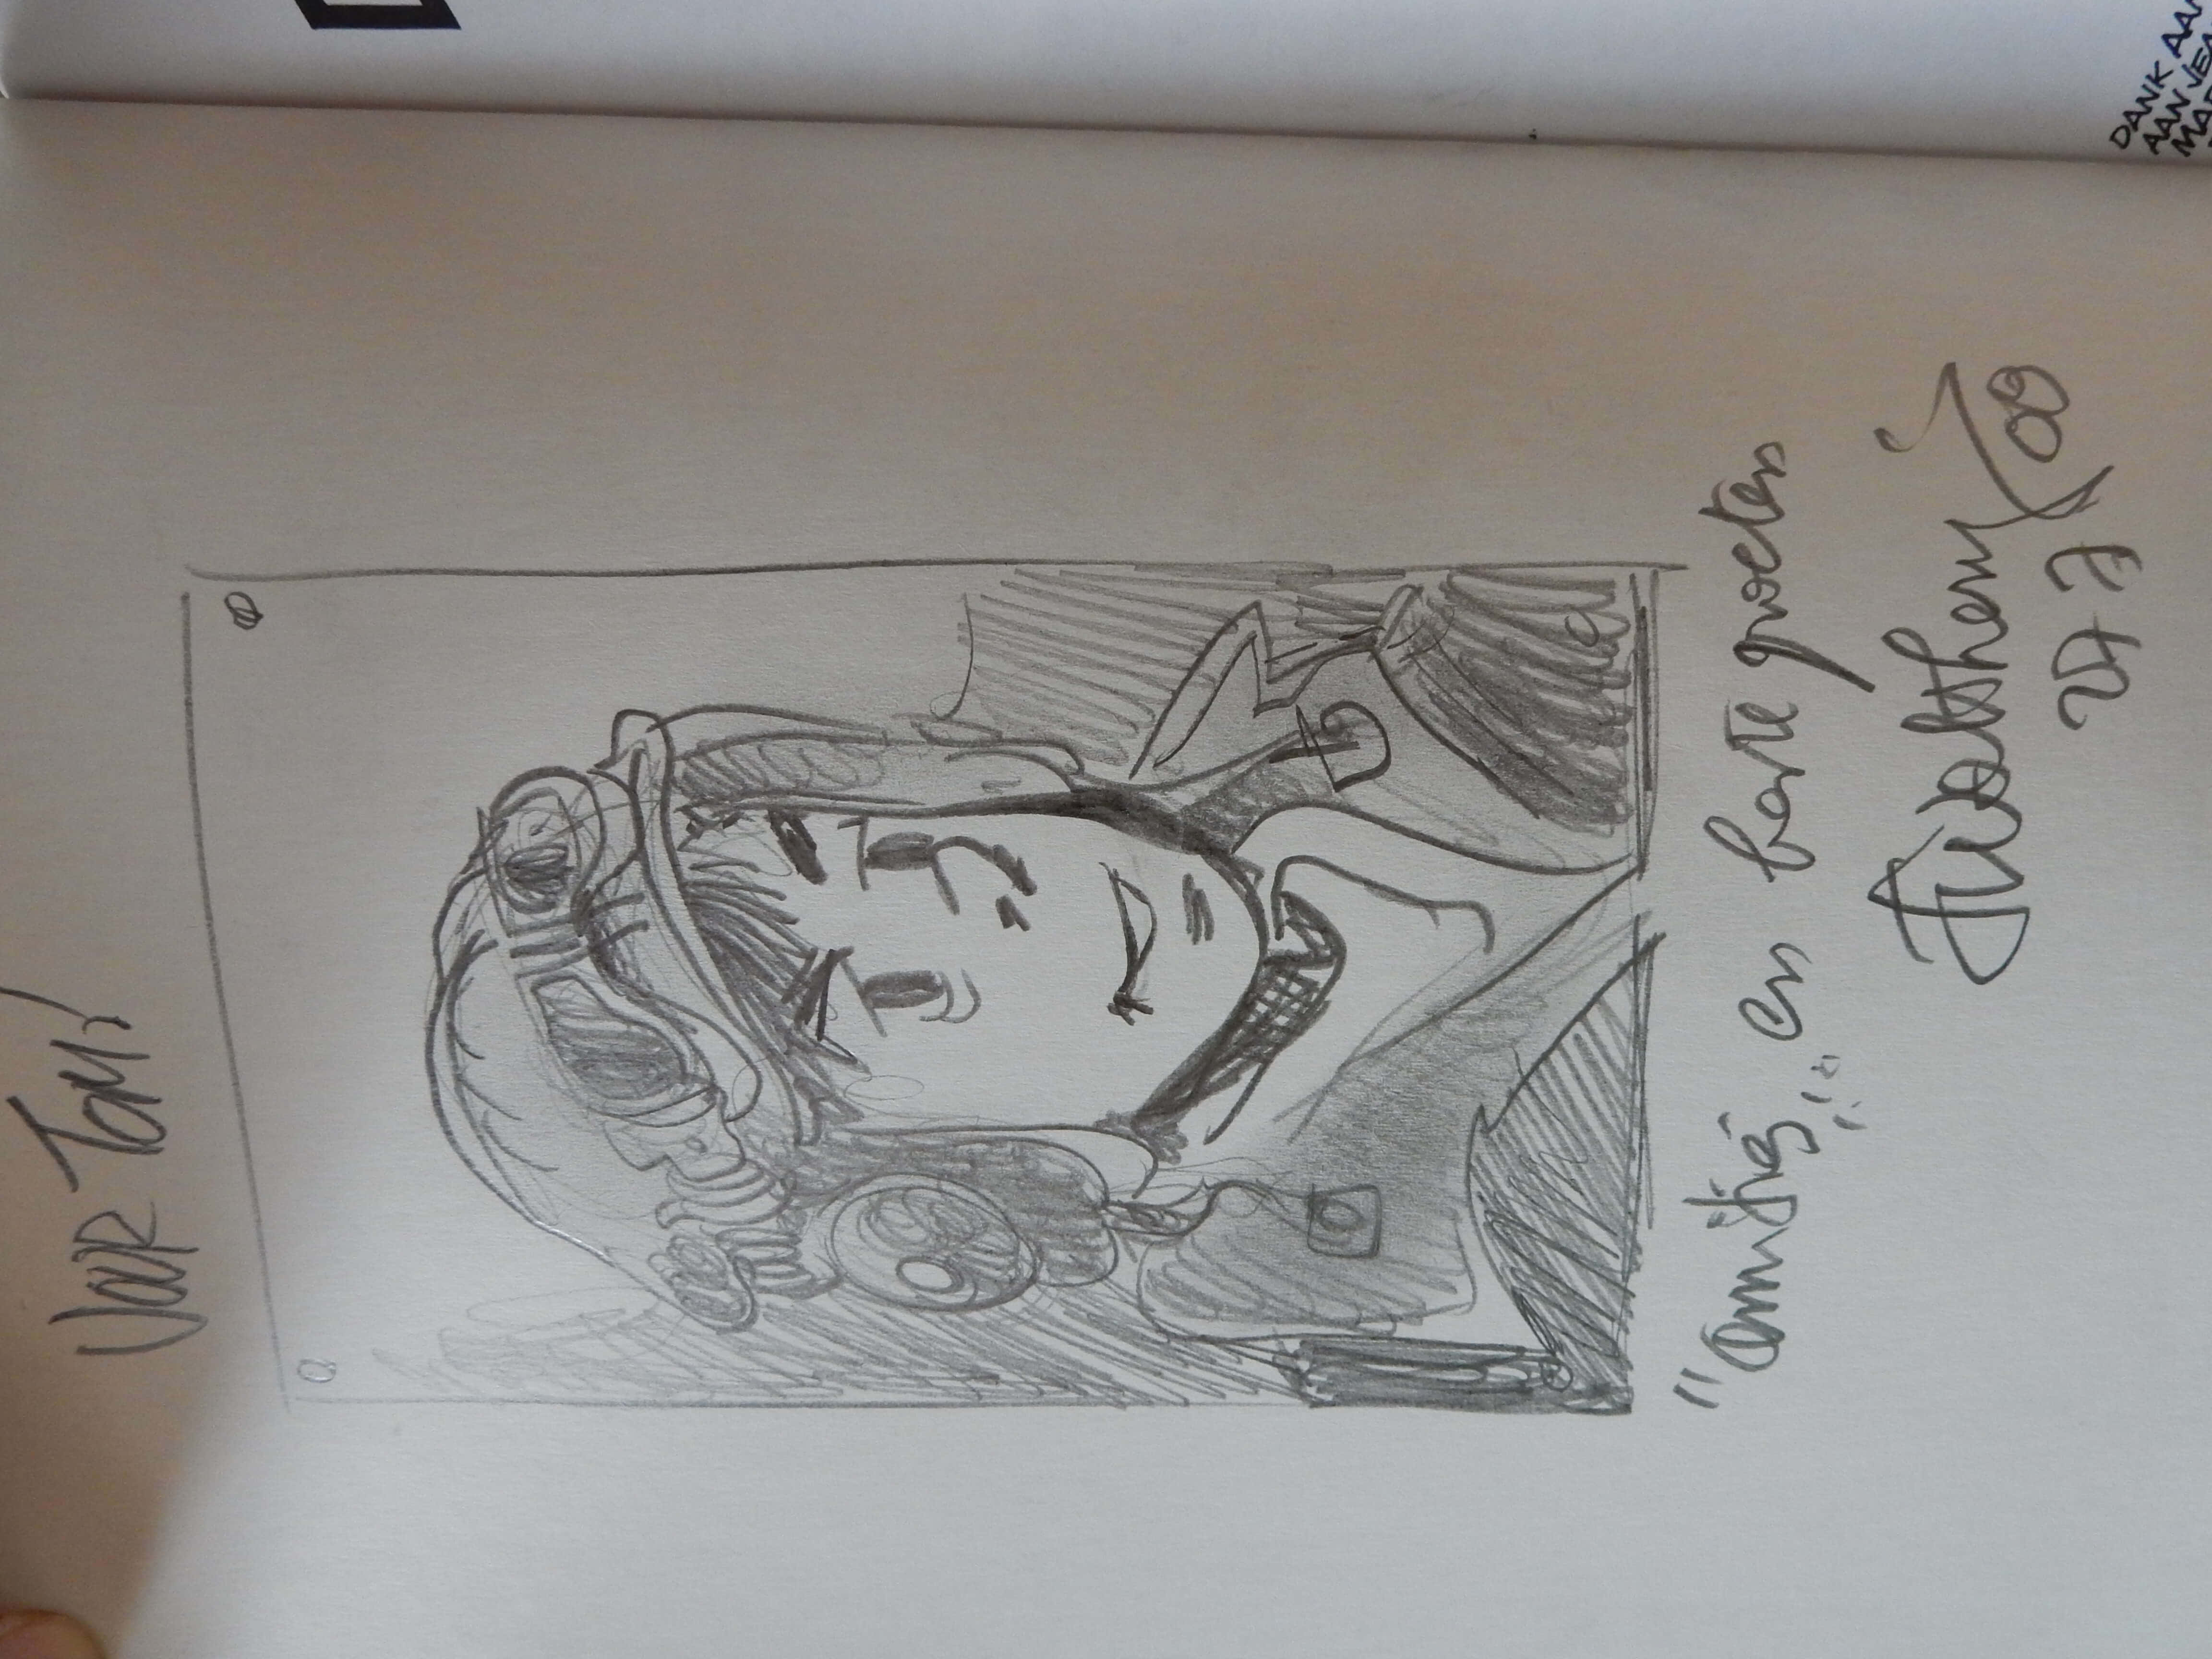 VOOR TOM!
"Amitiés" en beste groeten
F. Walthery
27 7 /08
DANK AAN
AAN JEA
MAR